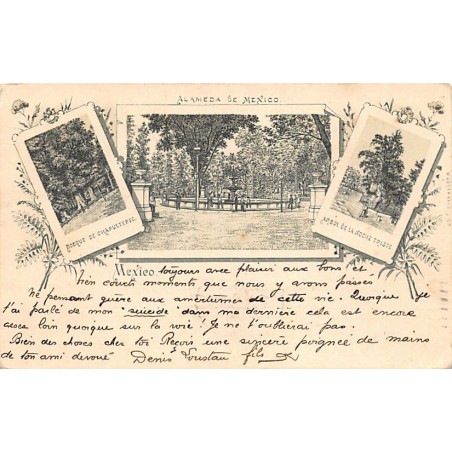 ALAMEDA DE MEXICO.
BOSQUE DE CHAPULTEPEC.
ARBOL DE LA NOCHE TRISTE
Mexico toujours avec plaisir aux bons et
bien courts moments que nous y avons passés
Ne pensant guère aux amertumes de cette vie. Quoique je
t'ai parlé de mon "suicide" dans ma dernière cela est encore
assez loin quoique sur la voie! Je ne t'oublierai pas.
Bien des choses cher toi Reçois une sincère poignée de mains
de ton ami dévoué Denis Loustau fils